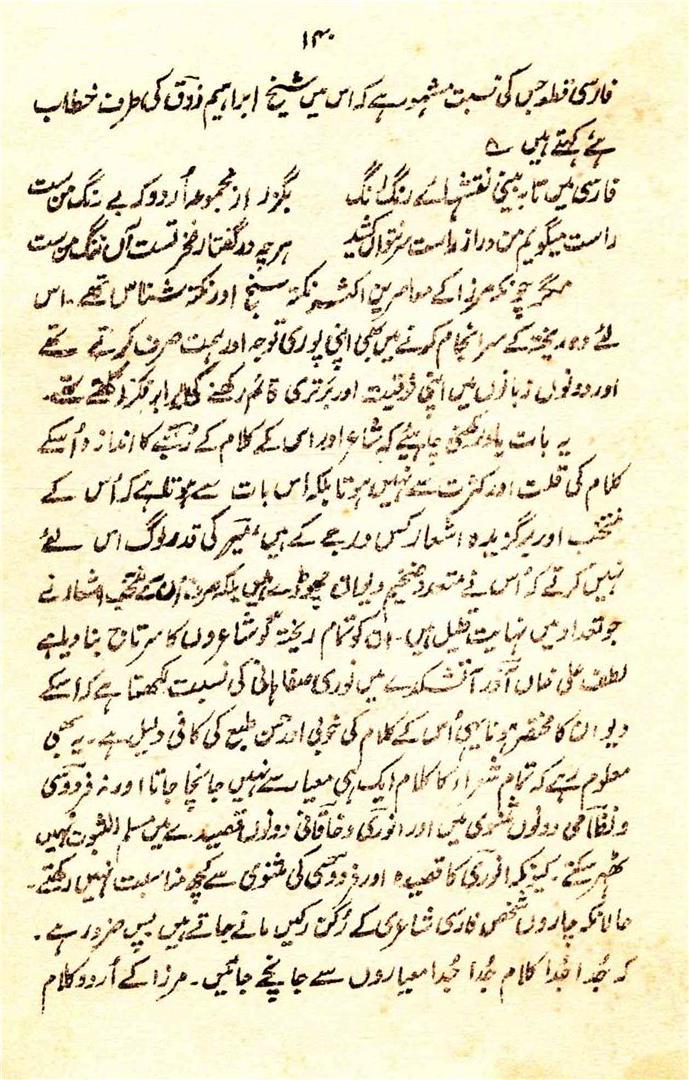 ۱۳۰
فارسی قطعہ جس کی نسبت مشہور ہے کہ اس میں شیخ ابراہیم ذوق کی طرف خطاب
ہے، کہتے ہیں ؎
فارسی بیں تا بہ بینی نقشہائے رنگ رنگ بگزر از مجموعہ اُردو کہ بے رنگ من ست
راست میگویم من و از راست سر نتواں کشید ہر چہ در گفتار فخر تست آں ننگ من ست
مگر چونکہ مرزا کے معاصرین اکثر نکتہ سنج اور نکتہ شناس تھے۔ اس
لئے وہ ریختہ کے سرانجام کرنے میں بھی اپنی پوری توجہ اور ہمت صرف کرتے تھے
اور دونوں زبانوں میں اپنی فوقیت اور برتری قائم رکھنے کی برابر فکر رکھتے تھے۔
یہ بات یاد رکھنی چاہیئے کہ شاعر اور اس کے کلام کے رُتبے کا اندازہ اُسکے
کلام کی قلت اور کثرت سے نہیں ہوتا بلکہ اس بات سے ہوتا ہے کہ اُس کے
منتخب اور برگزیدہ اشعار کس درجے کے ہیں، میر کی قدر لوگ اس لئے
نہیں کرتے کہ اُس نے متعدد ضخیم دیوان چھوڑے ہیں بلکہ صرف اُن کے منتخب اشعار نے
جو تعداد میں نہایت قلیل ہیں۔ ان کو تمام ریختہ گو شاعروں کا سرتاج بنا دیا ہے
لطف علی خاں آذر آتشکدے میں نوری صفاہانی کی نسبت لکھتا ہے کہ اسکے
دیوان کا مختصر ہونا ہی اُس کے کلام کی خوبی اور حسن طبع کی کافی دلیل ہے۔ یہ بھی
معلوم رہے کہ تمام شعراء کا کلام ایک ہی معیار سے نہیں جانچا جاتا اور نہ فردوسی
و نظامی دونوں مثنوی میں اور انوری و خاقانی دونوں قصیدے میں مسلم الثبوت نہیں
ٹھہر سکتے۔ کیونکہ انوری کا قصیدہ اور فردوسی کی مثنوی سے کچھ مناسبت نہیں رکھتے۔
حالانکہ چاروں شخص فارسی شاعری کے رُکن رکیں مانے جاتے ہیں پس ضرور ہے۔
کہ جُدا جُدا کلام جُدا جُدا معیاروں سے جانچے جائیں۔ مرزا کے اُردو کلام